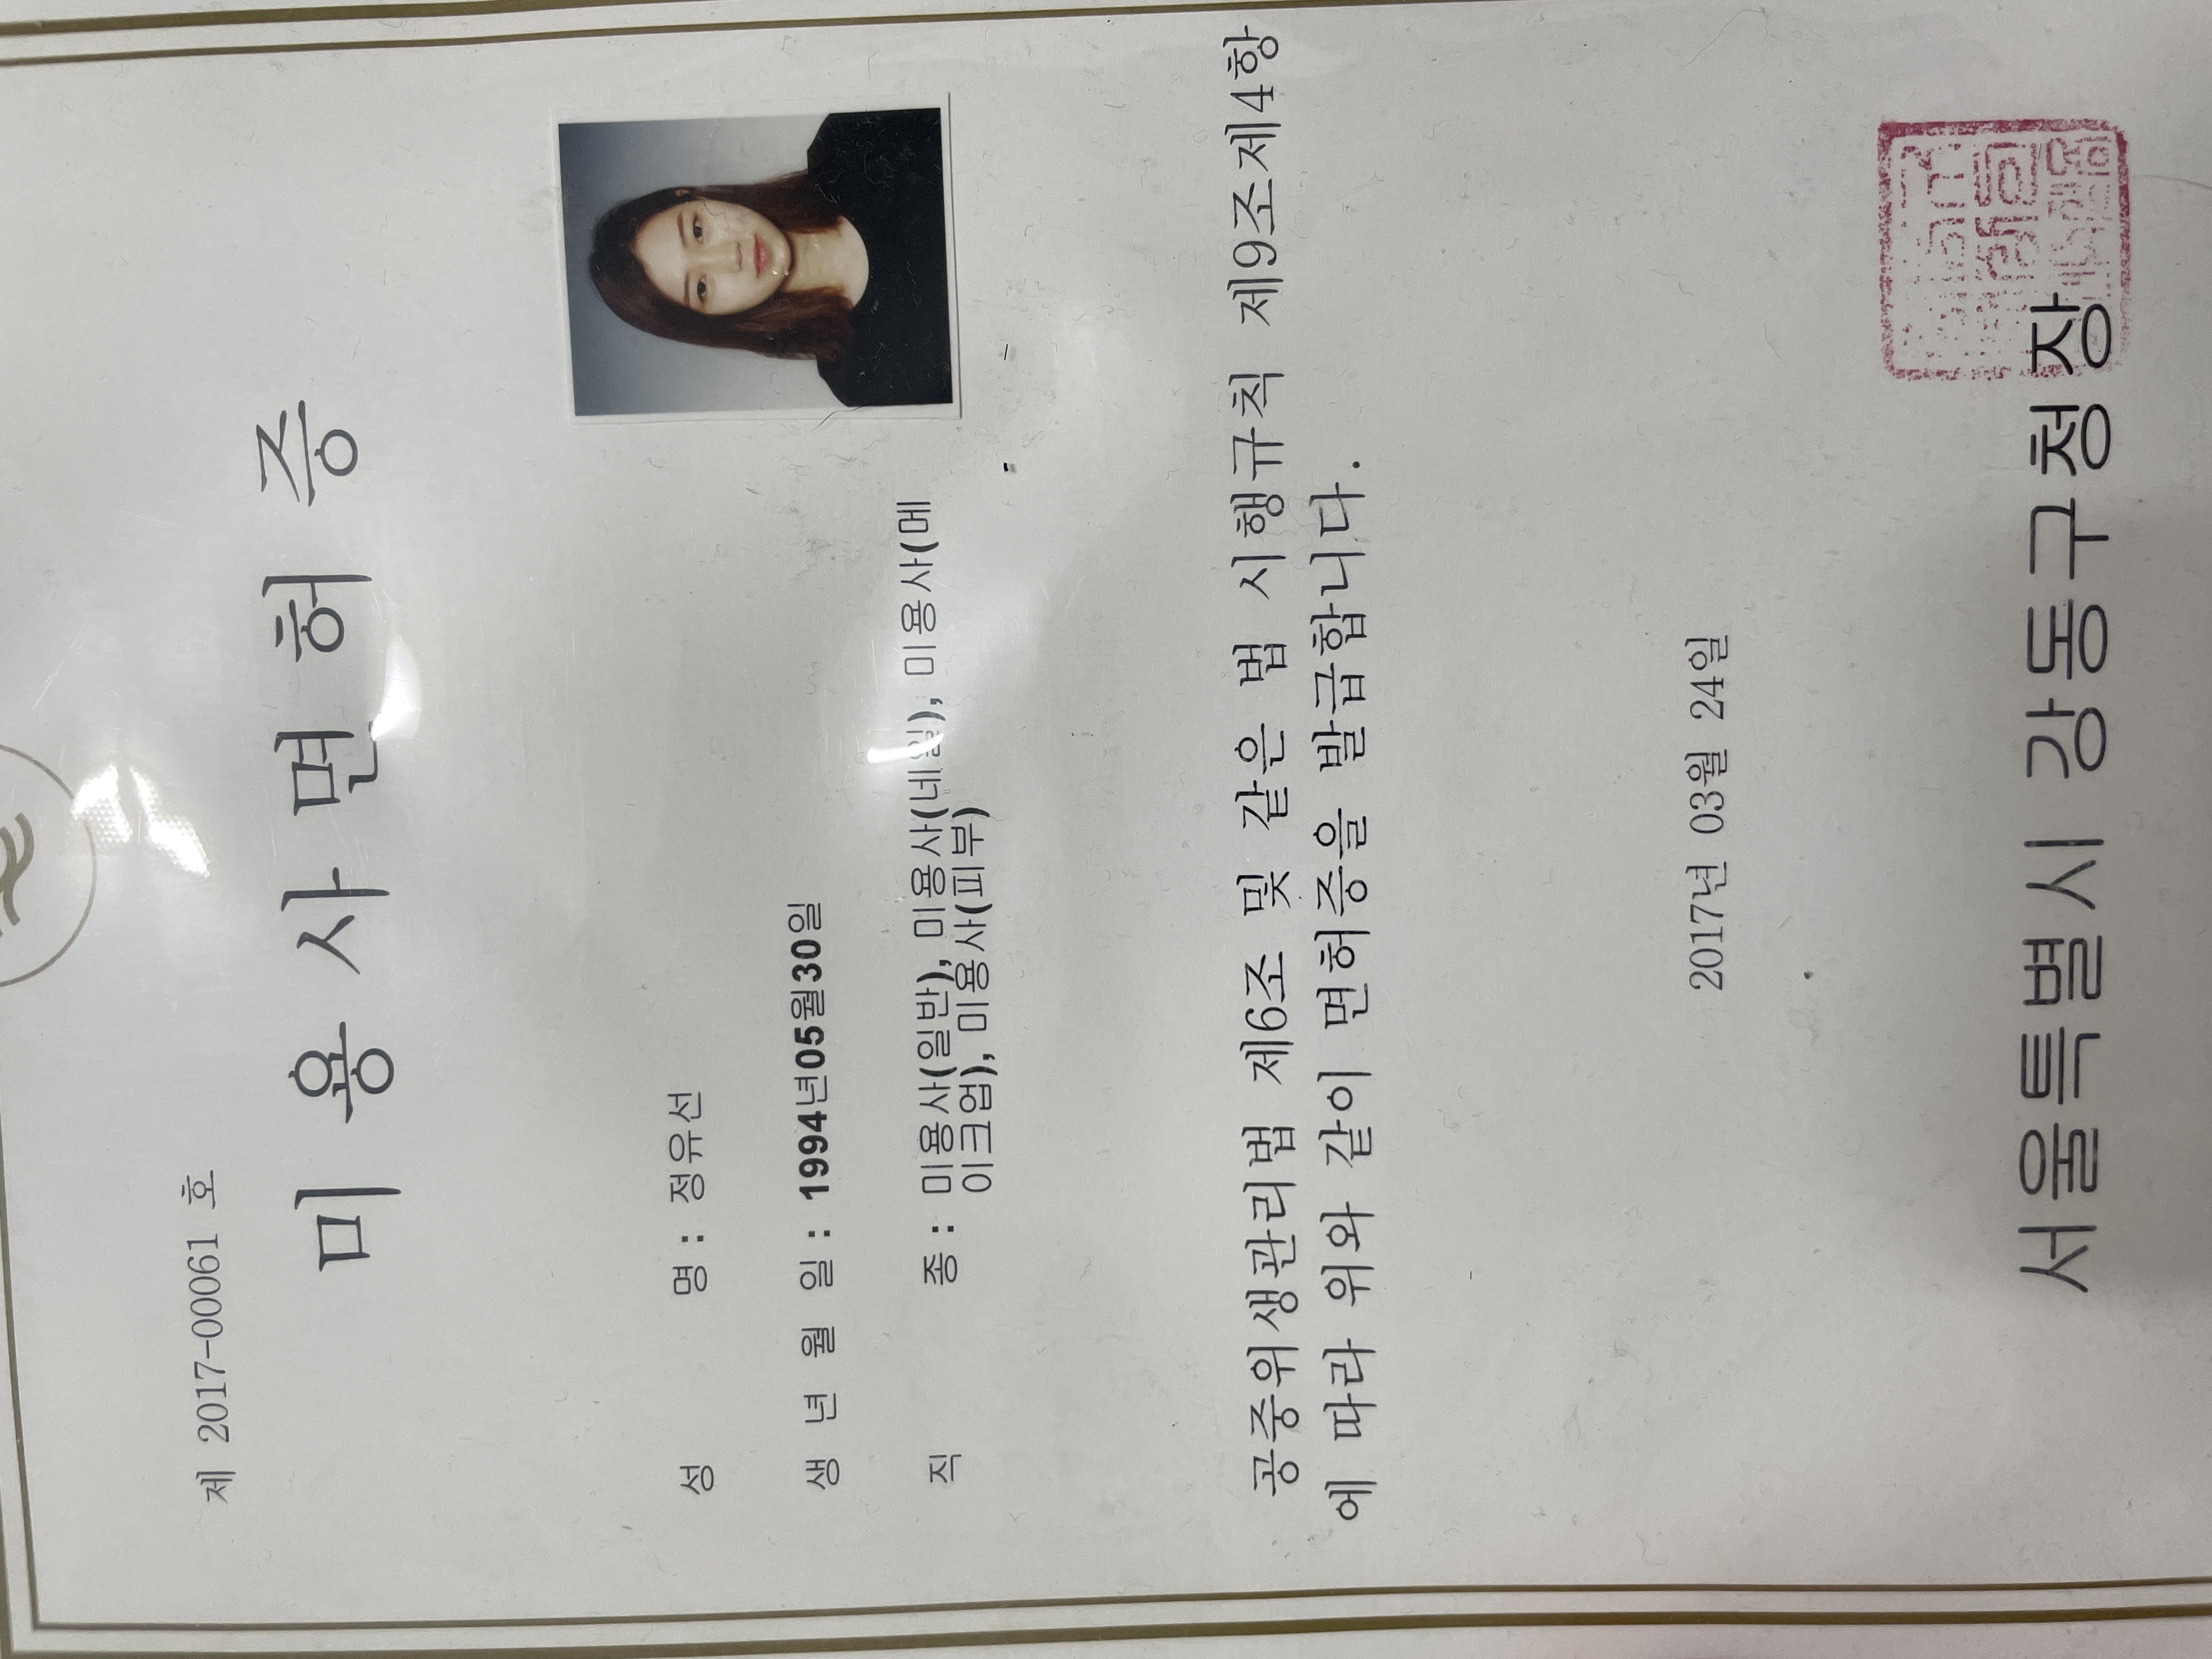 제 2017-00061 호
미 용 사 면 허 증
성 명 : 정유선
생 년 월 일 : 1994년05월30일
직 종 : 미용사(일반), 미용사(네일), 미용사(메
이크업), 미용사(피부)
공중위생관리법 제6조 및 같은 법 시행규칙 제9조제4항
에 따라 위와 같이 면허증을 발급합니다.
2017년 03월 24일
서울특별시 강동구청장